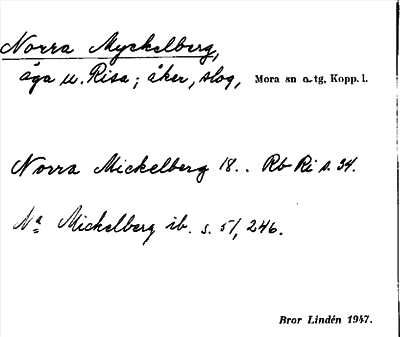 Norra Myckelberg,
äga u. Risa; åker, slog, Mora sn o. tg, Kopp. l.
Norra Mickelberg 18.. Rb Ri s. 34.
Na Mickelberg ib. s. 51, 246.
Bror Lindén 1947.